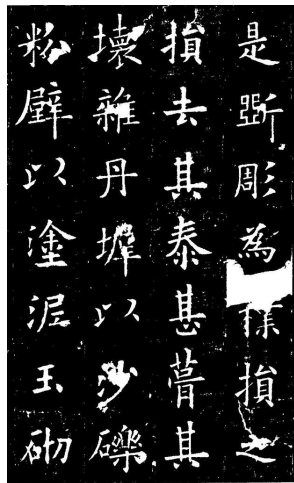 是斲彫為樸損之
損去其泰甚葺其
壞雜丹墀以沙礫
粉壁以塗泥玉砌